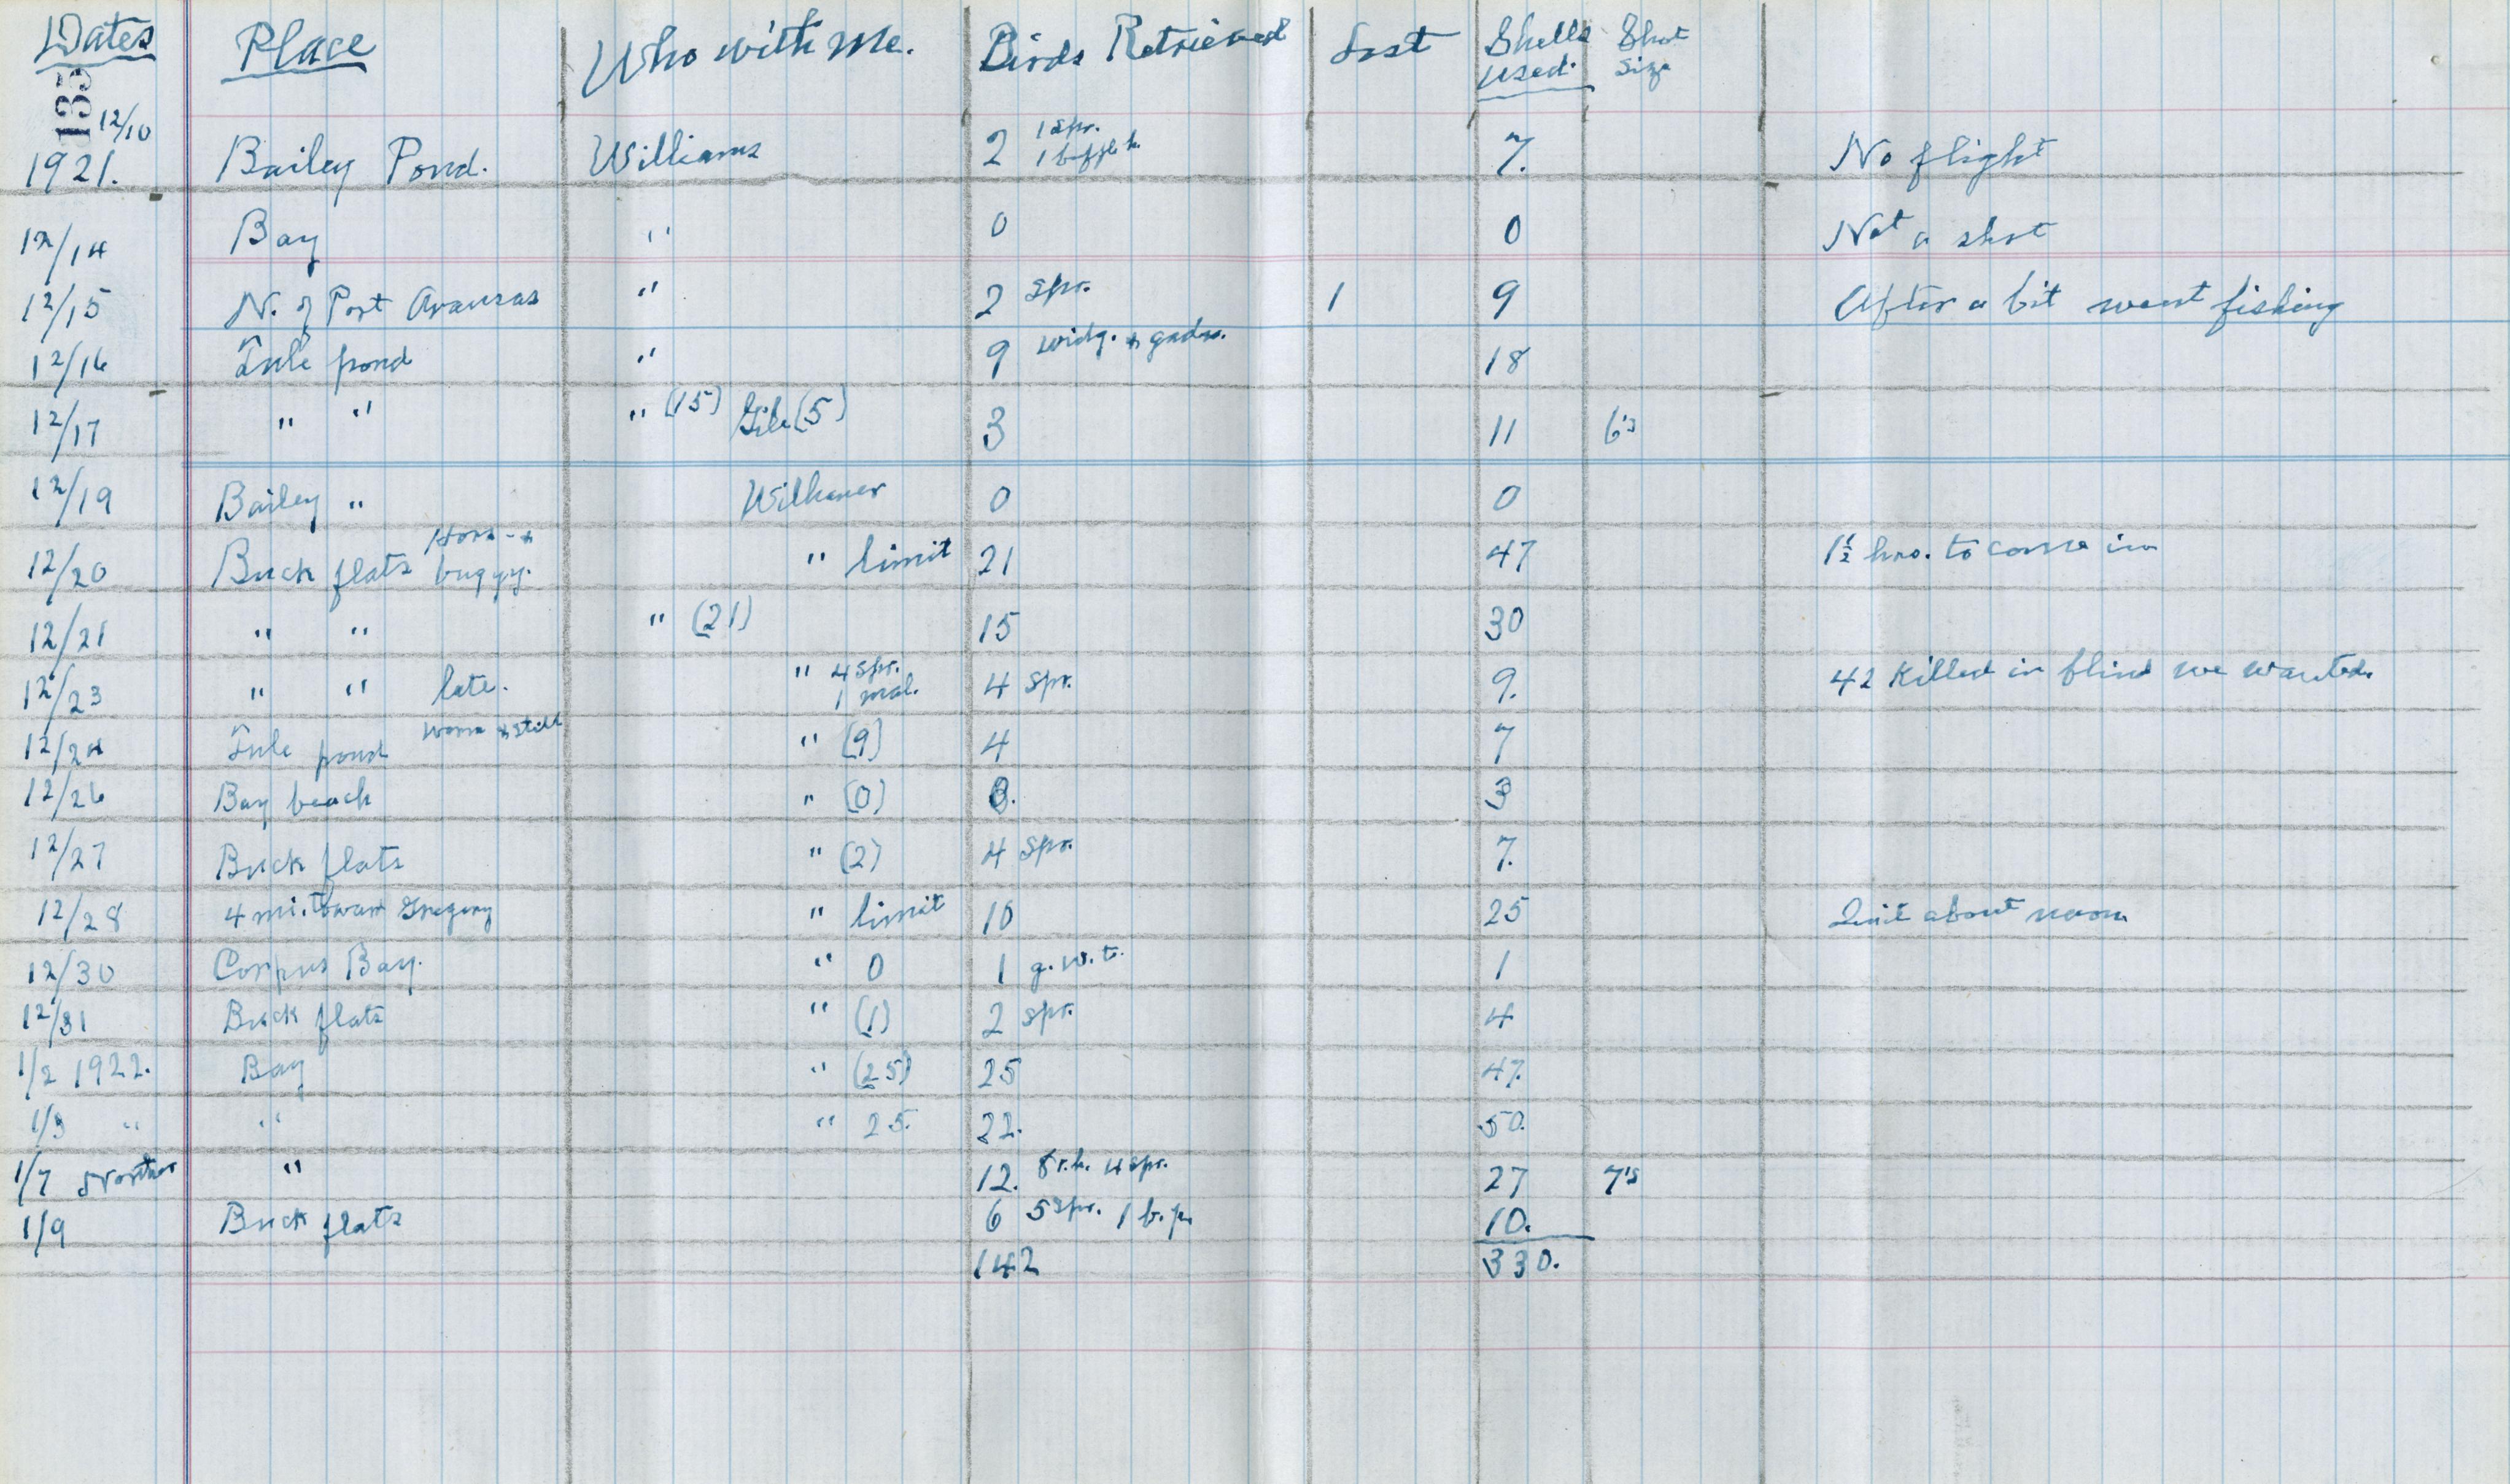 Dates Place Who with me. Birds Retrieved Lost Shells used. Shot Size
135
12/10 1921. Bailey Pond. Williams 2 1 spr. 1 buffleh. 7. No flight
12/14 Bay " 0 0 Not a shot
12/15 N. of Port Aransas " 2 spr. 1 9 After a bit went fishing
12/16 Tule pond " 9 widg. + gadw. 18
12/17 " " " (15) (5) 3 11 6's
12/19 Bailey " 0 0
12/20 Buck flats Hors- + buggy. " limit 21 47 1½ hrs. to come in
12/21 " " " (21) 15 30
12/23 " " late. " 4 spr. 1 mal. 4 spr. 9. 42 killed in blind we wanted.
12/24 Tule pond warm + still " (9) 4 7
12/26 Bay beach " (0) 0. 3
12/27 Buck flats " (2) 4 spr. 7.
12/28 4 mi. toward Gregory " limit 10 25 Quit about noon
12/30 Corpus Bay. " 0 1 g.w.t. 1
12/31 Buck flats " (1) 2 spr. 4
1/2 1922. Bay " (25) 25 47.
1/3 " " " 25. 22. 50.
1/7 Norther " 12. 8 r.h. 4 spr. 27 7's
1/9 Buck flats 6 5 spr. 1 b.p. 10.
142 330.